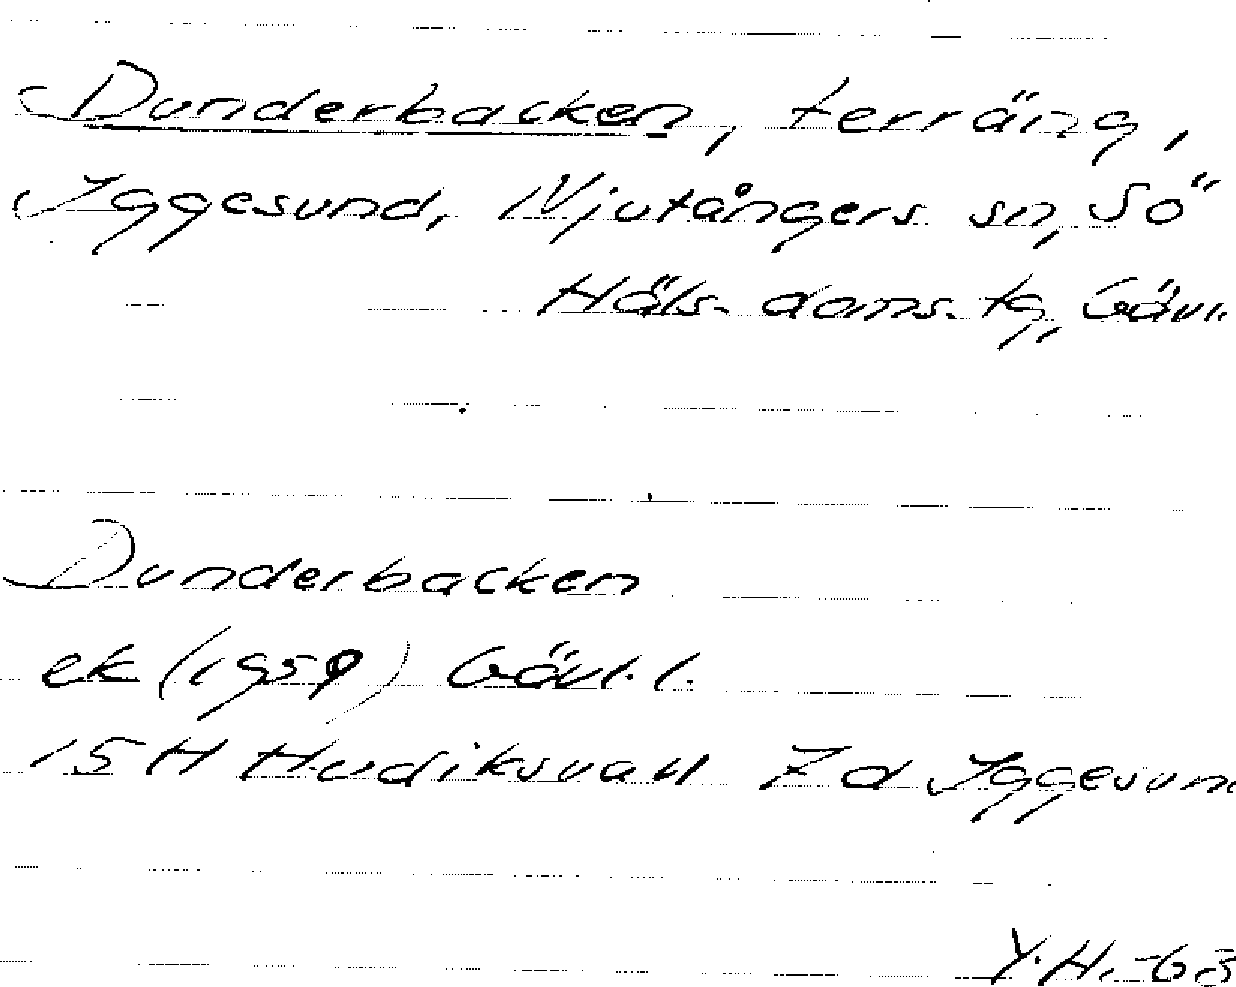 Dunderbacken, terräng,
Iggesund, Njutångers sn, Sö
Häls. doms. tg, Gävl.
Dunderbacken
ek (1959) Gävl. l.
15H Hudiksvall 7d Iggesun
Y.H. -63